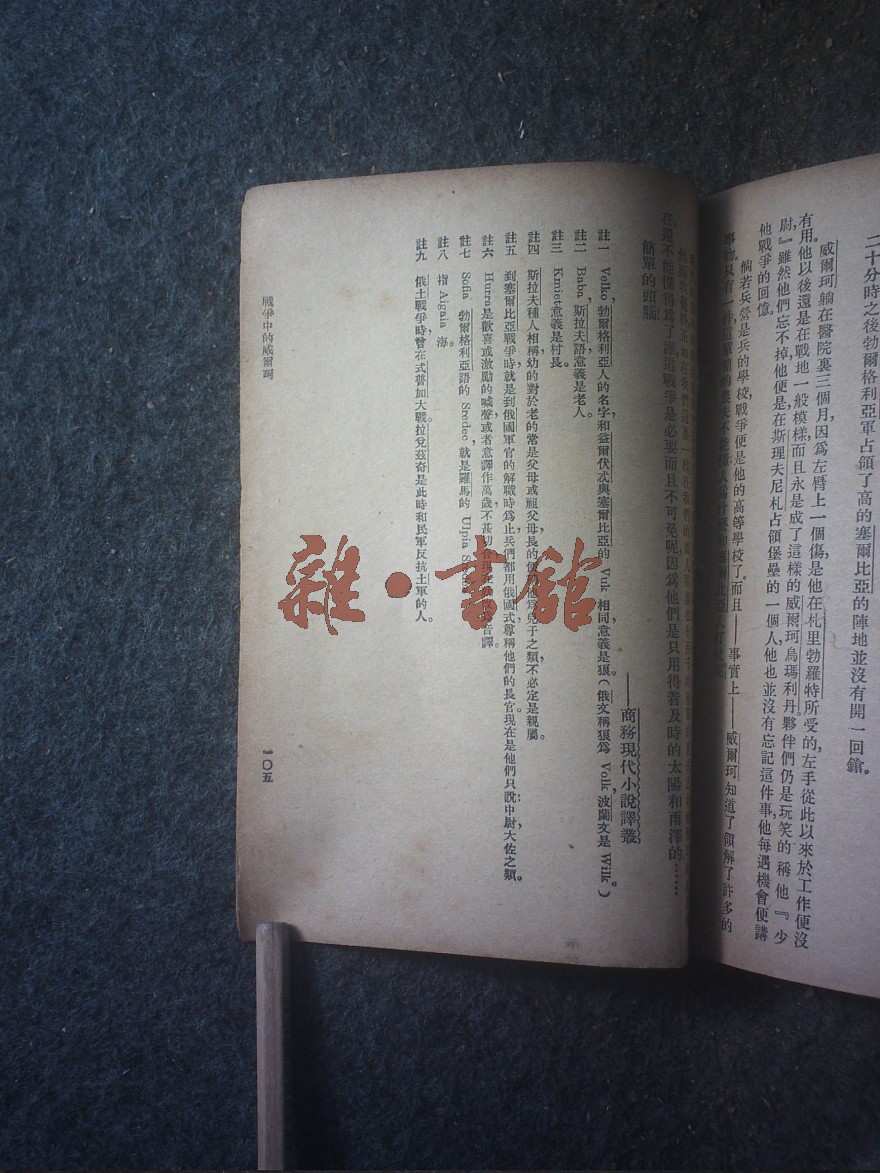 二十分時之後勃爾格利亞軍占領了高的塞爾比亞的陣地並沒有開一回鎗。
威爾珂躺在醫院裏三個月,因爲左脣上一個傷,是他在札里勃羅特所受的,左手從此以來於工作便沒
有用。他以後還是在戰地一般模樣,而且永是成了這樣的威爾珂烏瑪利丹夥伴們仍是玩笑的稱他『少
尉』雖然他們忘不掉,他便是在斯理夫尼札占領堡壘的一個人,他也並沒有忘記這件事,他每遇機會便講
他戰爭的回憶。
倘若兵營是兵的學校,戰爭便是他的高等學校了。而且——事實上——威爾珂知道了領解了許多的
事物。只有一件,
在,還不能懂得爲了誰這戰爭是必要而且不可免呢,因爲他們是只用得着及時的太陽和雨澤的……
簡單的頭腦!
——商務現代小說譯叢
註一 Velko,勃爾格利亞人的名字和益爾伏忒與塞爾比亞的 Vuk 相同,意義是狼(俄文稱狼爲 Volk,波蘭文是 Wilk。)
註二 Baba,斯拉夫語意義是老人。
註三 Kmiet 意義是村長。
註四 斯拉夫種人相稱,幼的對於老的常是父母或祖父母,長的便 爲兒子之類,不必定是親屬。
註五 到塞爾比亞戰爭時,就是到俄國軍官的解職時爲止,兵們都用俄國式尊稱他們的長官,現在是他們只說中尉,大佐之類。
註六 Hurra 是歡喜或激勵的喊聲,或者意譯作萬歲,不甚切 音譯。
註七 Sofia 勃爾格利亞語的 Sredec,就是羅馬的 Ulpia
註八 指 Aigaia 海。
註九 俄土戰爭時,曾在式普加大戰,拉兌茲奇是此時和民軍反抗土軍的人。
戰爭中的威爾珂
一〇五
雜·書館